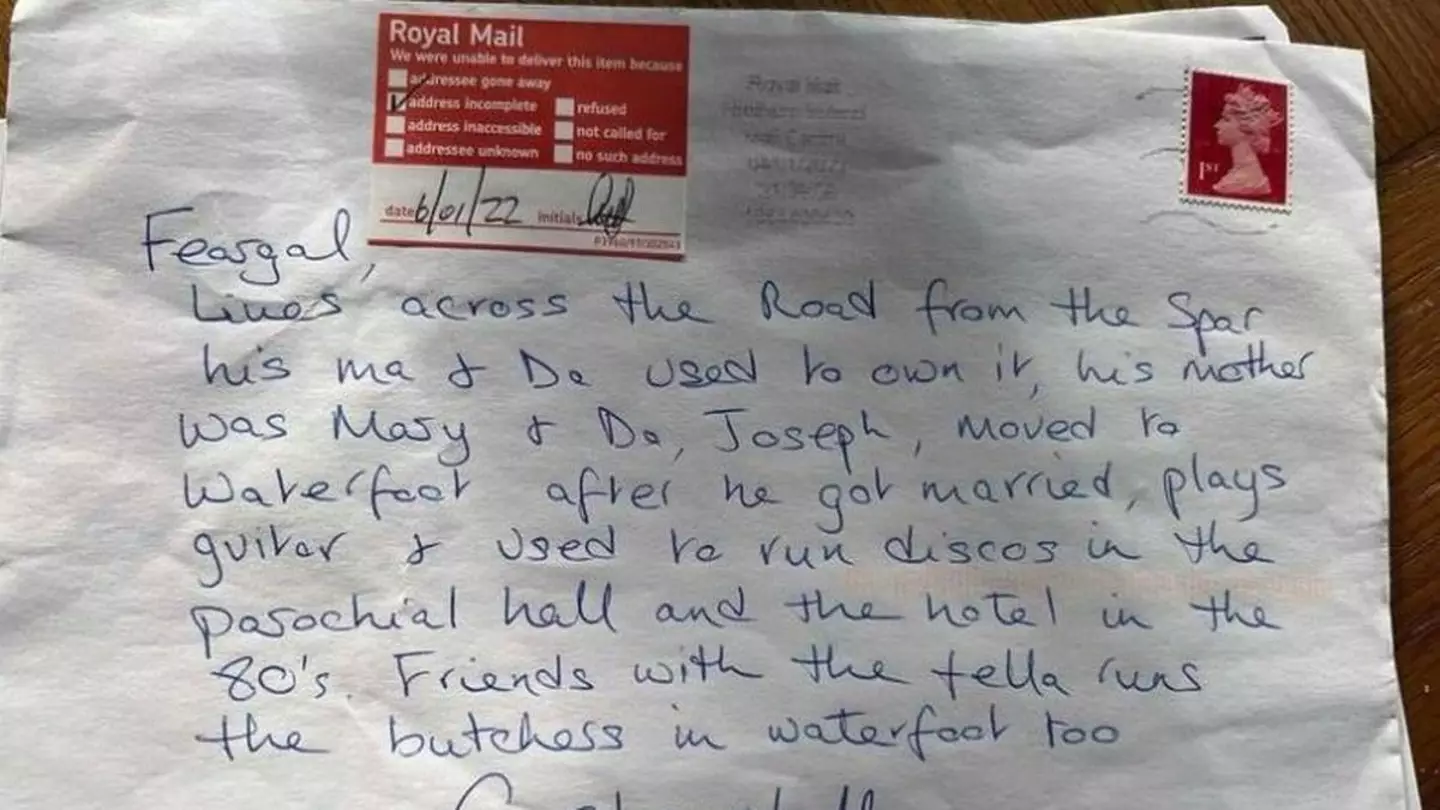 Royal Mail
We were unable to deliver this item because
addressee gone away
address incomplete
refused
address inaccessible
not called for
addressee unknown
no such address
date 6/01/22 initials
Royal Mail
1ST
Feargal,
Lives across the Road from the Spar
his ma & Da used to own it, his mother
was Mary & Da, Joseph, moved to
Waterfoot after he got married, plays
guitar & used to run discos in the
parochial hall and the hotel in the
80's. Friends with the fella runs
the butchers in waterfoot too